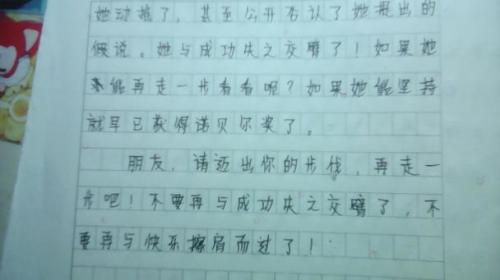 她动摇了，甚至公开否认了她提出的
假说。她与成功失之交臂了！如果她
能再走一步看看呢？如果她能坚持
就早已获得诺贝尔奖了。
朋友，请迈出你的步伐，再走一
步吧！不要再与成功失之交臂了，不
要再与快乐擦肩而过了！